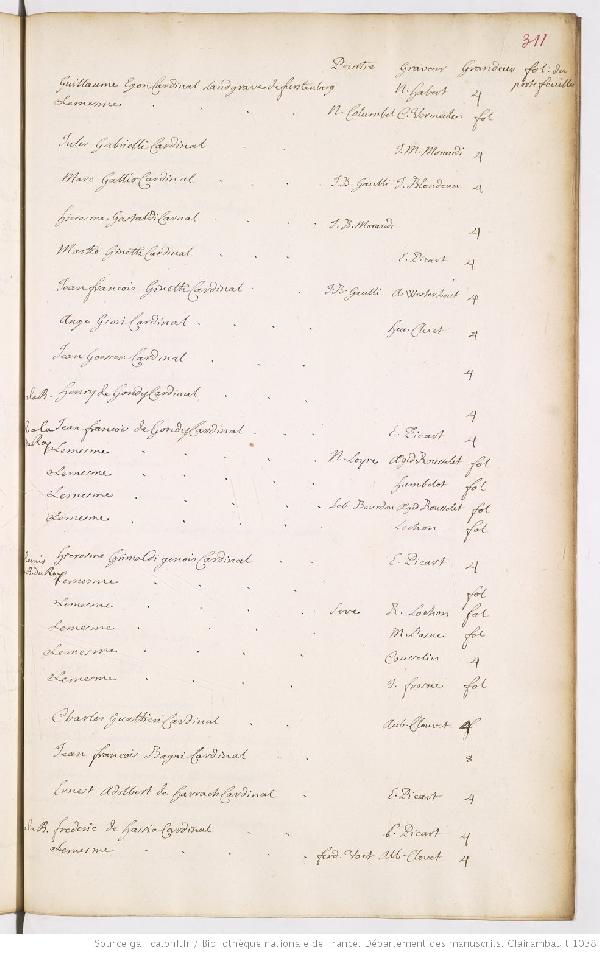 311
Peintre Graveur Grandeur fol. du
porte feuille
Guillaume Egon Cardinal Landgrave de furstenberg N. Habert 4
Lemesme N. Columbel C. Vermeulen fol
Jules Gabrielli Cardinal J. M. Morandi 4
Marc Gallio Cardinal J. B. Gaulli J. Blondeau 4
hierosme Gastaldi Carnal J. B. Morandi 4
Martio Ginetti Cardinal E. Picart 4
Jean francois Ginetti Cardinal J. B. Gaulli A. Westerhout 4
Ange Giori Cardinal hen. Cluet 4
Jean Goessen Cardinal 4
de R. Henry de Gondy Cardinal 4
Jean francois de Gondy Cardinal E. Picart 4
Lemesme N. Loyre Agid Rousselet fol
Lemesme humbelot fol
Lemesme Seb. Bourdon Agid Rousselet fol
Lemesme Lochon fol
hierosme Grimaldi genois Cardinal E. Picart 4
du Roy Lemesme fol
Lemesme Seve R. Lochon fol
Lemesme M. Lasne fol
Lemesme Couvelier 4
Lemesme J. frosne fol
Charles Gualthieri Cardinal Aub. Clouet 4
Jean francois Bagni Cardinal 8
Ernest Adelbert de harrach Cardinal E. Picart 4
de R. frederic de hassia Cardinal E. Picart 4
Lemesme ferd. Voet Alb. Clovet 4
Source gallica.bnf.fr / Bibliothèque nationale de France. Département des manuscrits. Clairambault 1038